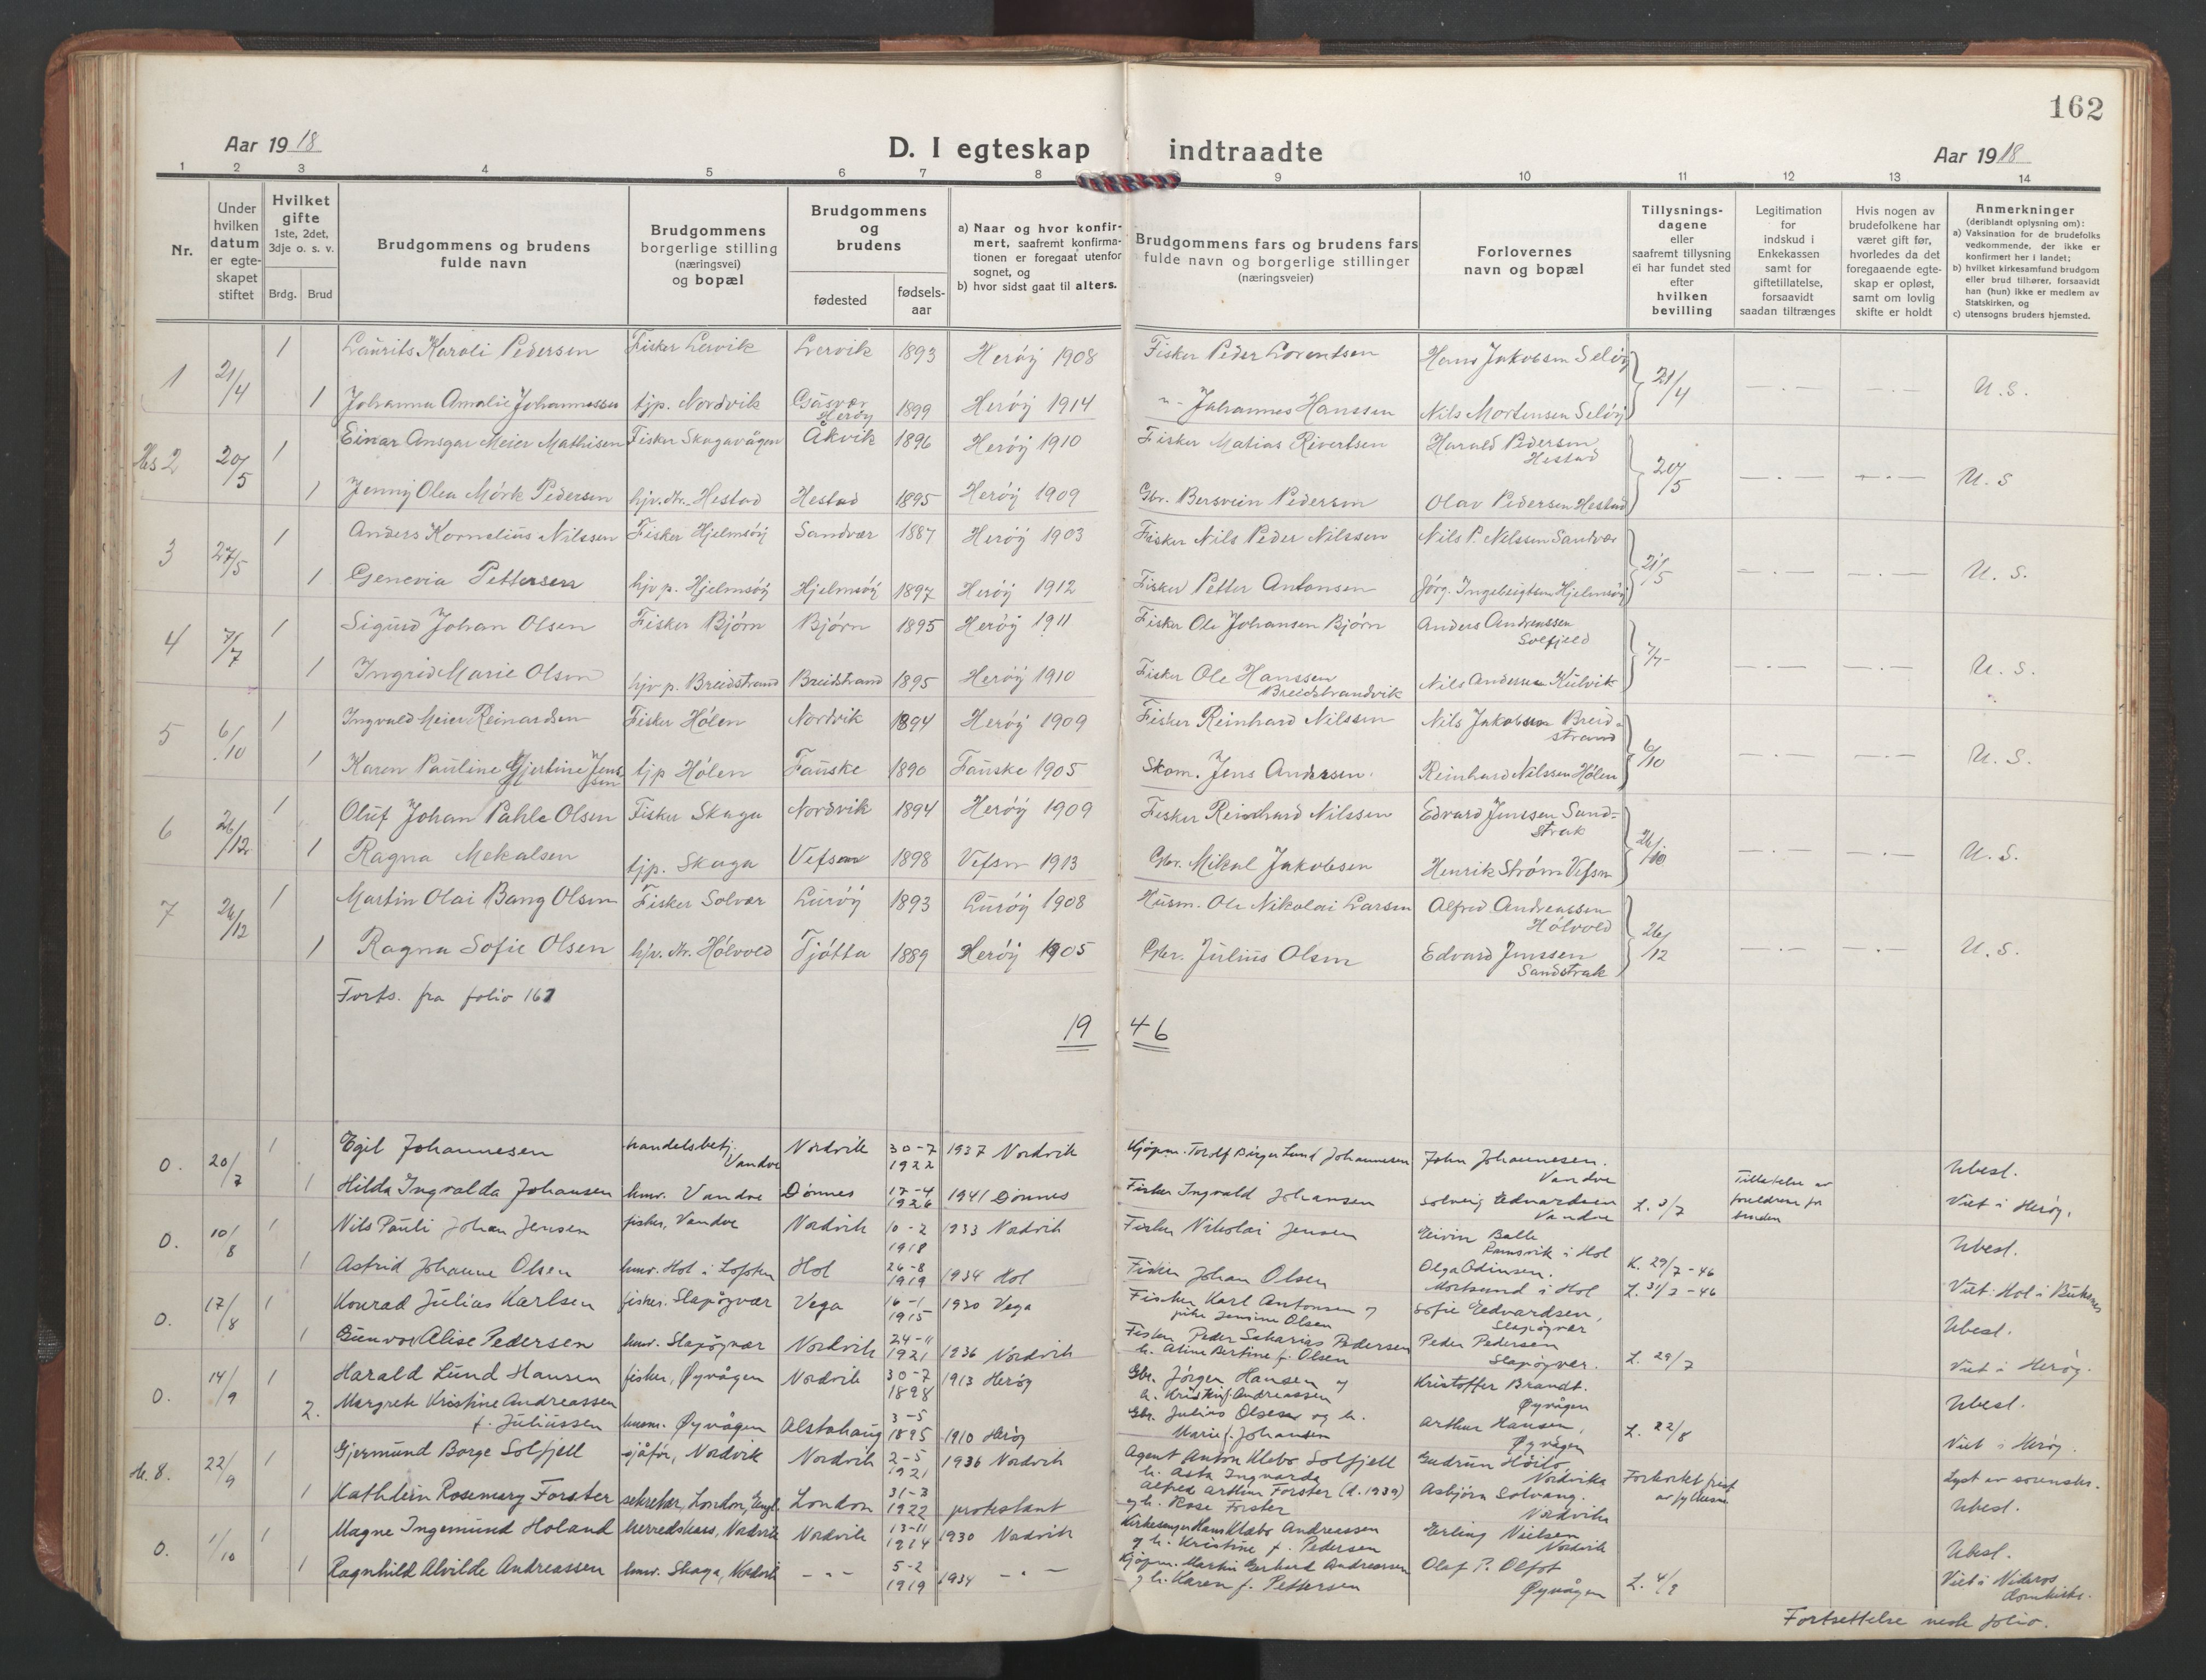 162
Aar 1918
D. I egteskap indtraadte
Aar 1918
1 2 3 4 5 6 7 8 9 10 11 12 13 14
Nr.
Under hvilken datum er egteskapet stiftet
Hvilket gifte 1ste, 2det, 3dje o. s. v.
Brdg. Brud
Brudgommens og brudens fulde navn
Brudgommens borgerlige stilling (næringsvei) og bopæl
Brudgommens og brudens
fødested
fødsels-aar
a) Naar og hvor konfirmert, saafremt konfirmationen er foregaat utenfor sognet, og
b) hvor sidst gaat til alters.
Brudgommens fars og brudens fars fulde navn og borgerlige stillinger (næringsveier)
Forlovernes navn og bopæl
Tillysnings-dagene eller saafremt tillysning ei har fundet sted efter hvilken bevilling
Legitimation for indskud i Enkekassen samt for giftetillatelse, forsaavidt saadan tiltrænges
Hvis nogen av brudefolkene har været gift før, hvorledes da det foregaaende egteskap er opløst, samt om lovlig skifte er holdt
Anmerkninger
(deriblandt oplysning om):
a) Vaksination for de brudefolks vedkommende, der ikke er konfirmert her i landet;
b) hvilket kirkesamfund brudgom eller brud tilhører, forsaavidt han (hun) ikke er medlem av Statskirken, og
c) utensogns bruders hjemsted.
1 21/4 1 Laurits Karoli Pedersen Fisker Lervik Lervik 1893 Herøy 1908 Fisker Peder Lorentsen Hans Jakobsen Seløy 21/4 U. S.
1 Johanna Amalie Johannessen tjp. Nordvik Gåsvær Herøy 1899 Herøy 1914 " - Johannes Hanssen Nils Mortensen Seløy
Hs 2 20/5 1 Einar Ansgar Meier Mathisen Fisker Skagavågen Åkvik 1896 Herøy 1910 Fisker Matias Rivertsen Harald Pedersen Hestad 20/5 U. S
1 Jenny Olea Mørk Pedersen hjv. dtr. Hestad Hestad 1895 Herøy 1909 Gbr. Bersvein Pedersen Olav Pedersen Hestad
3 27/5 1 Anders Kornelius Nilssen Fisker Hjelmsøy Sandvær 1887 Herøy 1903 Fisker Nils Peder Nilssen Nils P. Nilssen Sandvær U. S.
1 Genevia Pettersen hjv p. Hjelmsøy Hjelmsøy 1897 Herøy 1912 Fisker Petter Antonsen Jørg. Ingebrigtsen Hjelmsøy
4 7/7 1 Sigurd Johan Olsen Fisker Bjørn Bjørn 1895 Herøy 1911 Fisker Ole Johansen Bjørn Anders Andreassen Solfjeld 7/7 U. S.
1 Ingrid Marie Olsen hjv p. Breidstrand Breidstrand 1895 Herøy 1910 Fisker Ole Hanssen Breidstrandvik Nils Andersen Kulvik
5 6/10 1 Ingvald Meier Reinardsen Fisker Hølen Nordvik 1894 Herøy 1909 Fisker Reinhard Nilssen Nils Jakobsen Breidstrand 6/10 U. S.
1 Karen Pauline Gjertine Jenssen tjp Hølen Fauske 1890 Fauske 1905 Skom. Jens Andersen. Reinhard Nilssen Hølen
6 26/12 1 Oluf Johan Pahle Olsen Fisker Skaga Nordvik 1894 Herøy 1909 Fisker Reinhard Nilssen Edvard Jenssen Sandstrak U. S.
1 Ragna Mekalsen tjp. Skaga Vefsen 1898 Vefsn 1913 Gbr. Mikal Jakobsen Henrik Strøm Vefsn
7 26/12 1 Martin Olai Bang Olsen Fisker Solvær Lurøy 1893 Lurøy 1908 Husm. Ole Nikolai Larsen Alfred Andreassen Hølvold 26/12 U. S.
1 Ragna Sofie Olsen hjv. dtr. Hølvold Tjøtta 1889 Herøy 1905 Gbr. Julius Olsen Edvard Jenssen Sandstrak
Forts. fra folio 161
1946
0. 20/7 1 Egil Johannesen handelsbetj. Vandve Nordvik 30-7 1922 1937 Nordvik Kjøpm. Torolf Birger Lund Johannesen John Johannesen. Vandve Ubesl.
1 Hilda Ingvalda Johansen husv. Vandve Dønnes 17-4 1926 1941 Dønnes Fisker Ingvald Johansen Solveig Edvardsen Vandve L. 3/7 Tillatelse av foreldrene for bruden Viet i Herøy.
0. 10/8 1 Nils Pauli Johan Jensen fisker, Vandve Nordvik 10-2 1918 1933 Nordvik Fisker Nikolai Jensen Eivin Balle Ramsvik i Hol K. 29/7-46 Ubesl.
1 Astrid Johanne Olsen husv. Hol i Lofoten Hol 26-8 1919 1934 Hol Fisker Johan Olsen Olga Odinsen. Mortsund i Hol L. 31/7-46 Viet: Hol i Buksnes
0. 17/8 1 Konrad Julius Karlsen fisker. Slapøyvær Vega 16-1 1915 1930 Vega Fisker Karl Antonsen og pike Jensine Olsen Sofie Edvardsen, Slapøyvær Ubesl.
1 Gunvor Alise Pedersen husv. Slapøyvær Nordvik 24-11 1921 1936 Nordvik Fisker Peder Sakarias Pedersen h. Aline Bertine f. Olsen Peder Pedersen Slapøyvær. L. 29/7 Viet i Herøy.
0. 14/9 1 Harald Lund Hansen fisker, Øyvågen Nordvik 30-7 1898 1913 Herøy Gbr. Jørgen Hansen og h. Kristin f. Andreassen Kristoffer Brandt. Øyvågen Ubesl.
2. Margrete Kristine Andreassen f. Juliussen husm. Øyvågen Alstahaug 3-5 1895 1910 Herøy Gbr. Julius Olsen og h. Marie f. Johansen Arthur Hansen, Øyvågen L. 22/8 Viet i Herøy.
N. 8. 22/9 1 Gjermund Borge Solfjell sjåfør, Nordvik Nordvik 2-5 1921 1936 Nordvik Agent Anton Klebo Solfjell h. Asta Ingvarda Gudrun Høilo, Nordvika Forkortet frist av fylkesm. Lyst av sorenskr.
1 Kathleen Rosemary Forster sekretær, London, Engl. London 31-3 1922 protestant Alfred Arthur Forster (d. 1939) og h. Rose Forster Asbjørn Solvang. Nordvika Ubesl.
0. 1/10 1 Magne Ingemund Holand herredskass, Nordvik Nordvik 13-11 1914 1930 Nordvik Kirkesanger Hans Klæbo Andreassen og h. Kristine f. Pedersen Erling Nielsen Nordvik Ubesl.
1 Ragnhild Alvilde Andreassen husv. Skaga, Nordvik - " - 5-2 1919 1934 - " - Kjøpm. Martin Gerhard Andreassen og h. Karen f. Pettersen Olaf P. Olfot Øyvågen L. 4/9 Viet i Nidaros domkirke.
Fortsettelse neste folio.